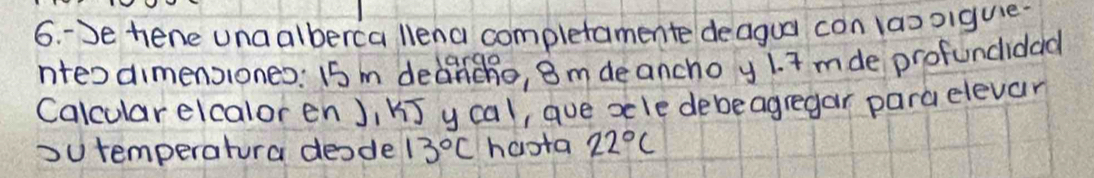 6.- Se tiene una alberca llena completamente de agua con las siguie-
ntes dimensiones: 15 m de largo, 8 m de ancho y 1.7 m de profundidad
Calcular el calor en J, KJ y cal, que se le debe agregar para elevar
su temperatura desde 13°C hasta 22°C